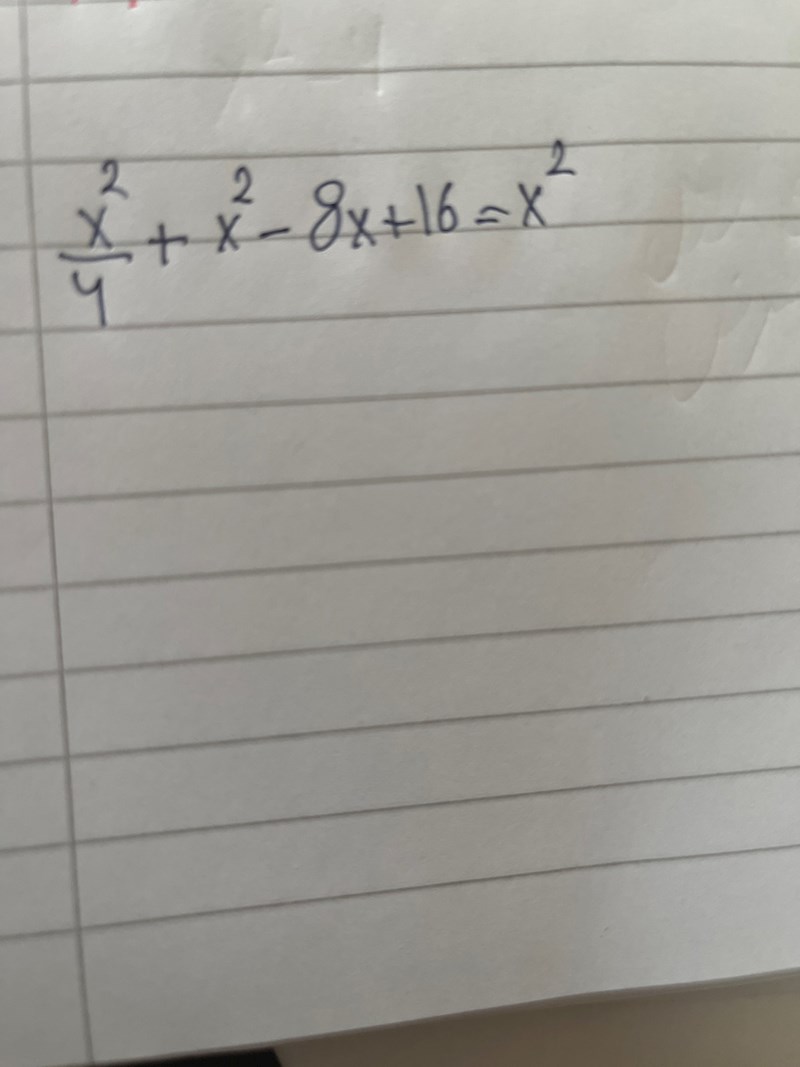 x²/4 + x² - 8x + 16 = x²